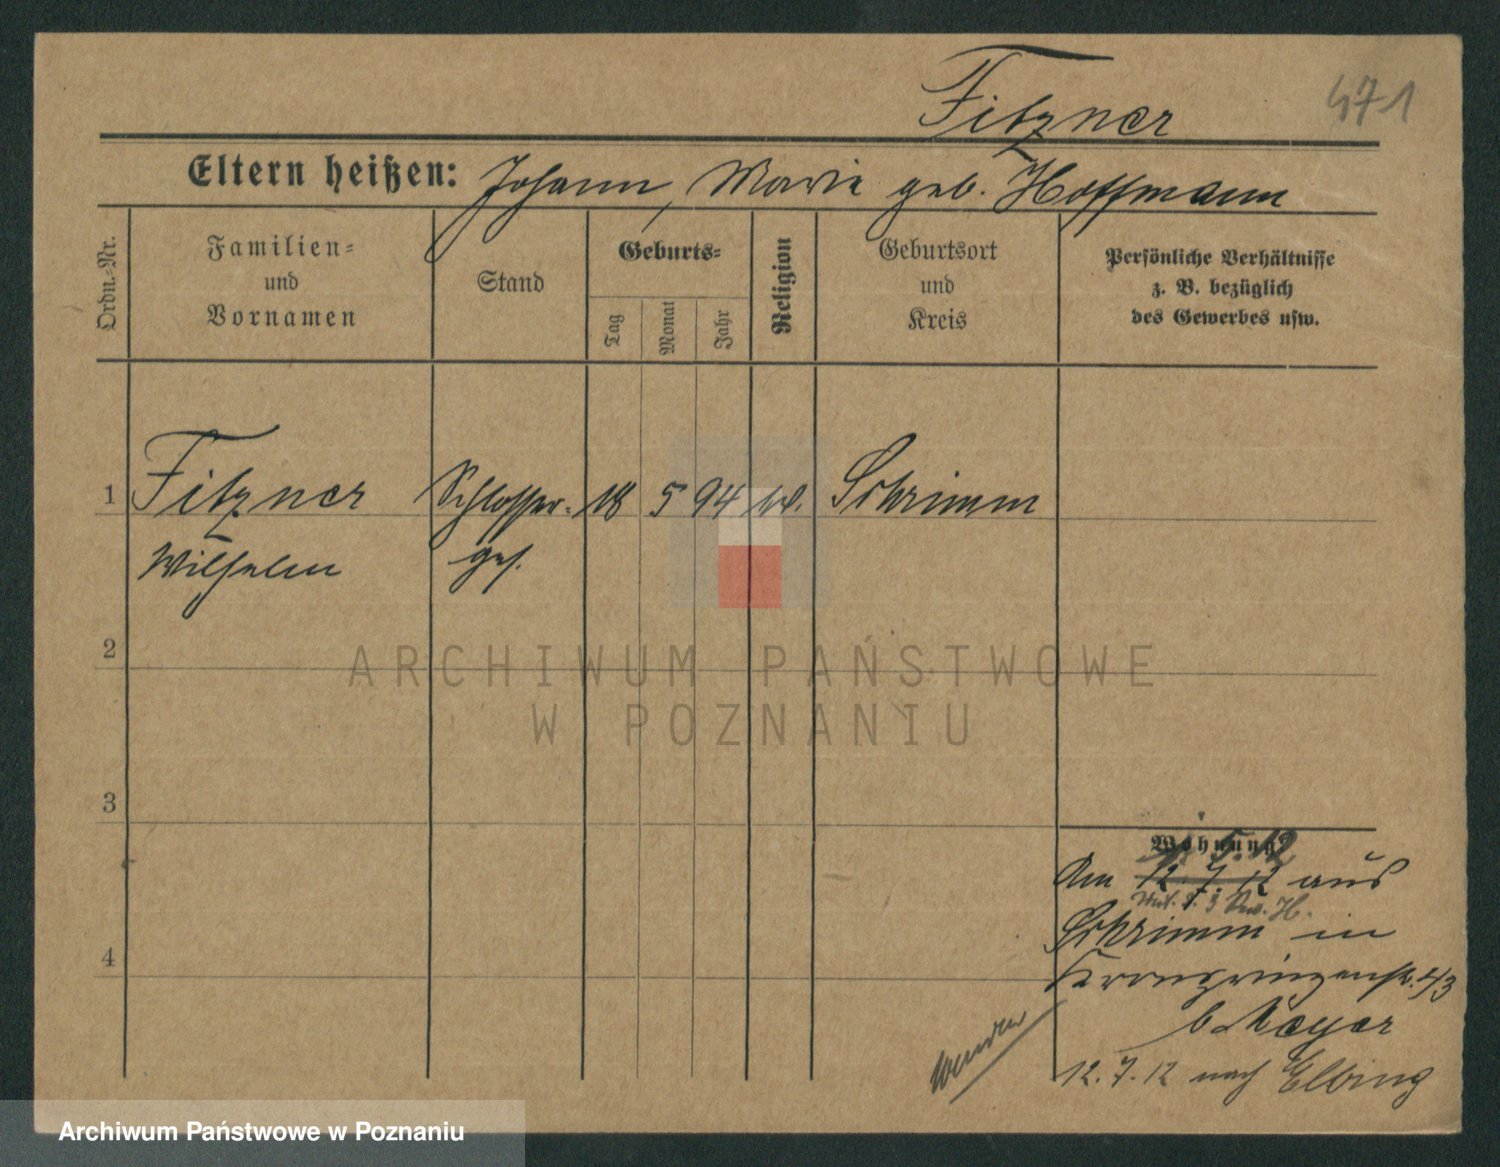 Fitzner
471
Eltern heißen: Johann, Marie geb. Hoffmann
Ordn.-Nr.
Familien-
und
Vornamen
Stand
Geburts-
Tag
Monat
Jahr
Religion
Geburtsort
und
Kreis
Persönliche Verhältnisse
z. B. bezüglich
des Gewerbes usw.
1 Fitzner Schlosser- 18 5 94 Schrimm
Wilhelm ges.
2
ARCHIWUM PAŃSTWOWE
W POZNANIU
3
Wohnung
5.12
Am 12.7.12 aus
Schrimm in
4
Kronprinzenstr. 43
b. Meyer
12.7.12 nach Elbing
wenden
Archiwum Państwowe w Poznaniu